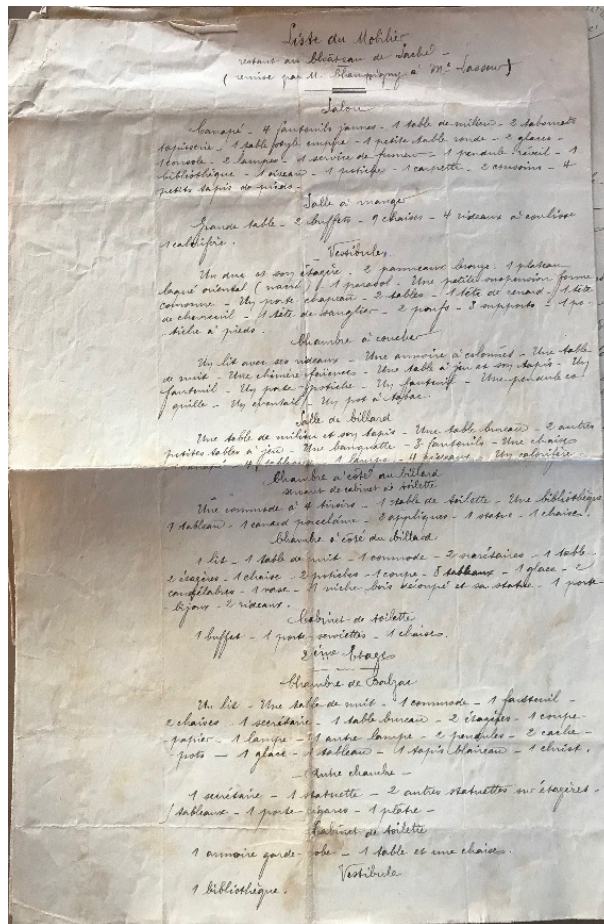 Liste du Mobilier
restant au Château de Saché -
(remise par M. Champigny à Mr Lasseur)
Salon
Canapé - 4 fauteuils jaunes - 1 table de milieu - 2 tabourets
tapisserie - 1 table style empire - 1 petite table ronde - 2 glaces -
1 console - 2 lampes - 1 service de fumeur - 1 pendule réveil - 1
bibliothèque - 1 oiseau - 1 potiche - 1 carpette - 2 coussins - 4
petits tapis de pieds -
Salle à manger
Grande table - 2 buffets - 9 chaises - 4 rideaux à coulisse
1 calorifère.
Vestibules
Un duc et son étagère. 2 panneaux bronze. 1 plateau
laqué oriental (nacré) - 1 parasol - Une petite suspension forme
couronne - Un porte chapeau - 2 tables - 1 tête de renard - 1 tête
de chevreuil - 1 tête de sanglier - 2 poufs - 3 supports - 1 po-
tiche à pieds -
Chambre à coucher
Un lit avec ses rideaux - Une armoire à colonnes - Une table
de nuit - Une chimère faïences - Une table à jeu et son tapis - Un
fauteuil - Un porte-potiche - Un fauteuil - Une pendule co
quille - Un éventail - Un pot à tabac.
Salle de billard
Une table de milieu et son tapis - Une table bureau - 2 autres
petites tables à jeu - Une banquette - 3 fauteuils - Une chaise
1 canapé - 4 tableaux - 1 lampe - 4 rideaux - Un calorifère -
Chambre à côté du billard
servant de cabinet de toilette
Une commode à 4 tiroirs - 1 table de toilette - Une bibliothèque
1 tableau - 1 canard porcelaine - 3 appliques - 1 statue - 1 chaise.
Chambre à côté du billard
1 lit - 1 table de nuit - 1 commode - 2 secrétaires - 1 table -
2 étagères - 1 chaise - 2 potiches - 1 coupe - 8 tableaux - 1 glace - 2
candélabres - 1 vase - 1 niche bois découpé et sa statue - 1 porte
-bijoux - 2 rideaux.
Cabinet de toilette
1 buffet - 1 porte-serviettes - 1 chaise.
2ème Etage
Chambre de Balzac
Un lit - Une table de nuit - 1 commode - 1 fauteuil -
2 chaises - 1 secrétaire - 1 table bureau - 2 étagères - 1 coupe-
papier - 1 lampe - 1 autre lampe - 2 pendules - 2 cache-
pots - 1 glace - 1 tableau - 1 tapis blaireau - 1 christ.
- Autre chambre -
1 secrétaire - 1 statuette - 2 autres statuettes sur étagères -
tableaux - 1 porte-cigares - 1 plâtre -
Cabinet de toilette
1 armoire garde-robe - 1 table et une chaise.
Vestibule
1 bibliothèque.